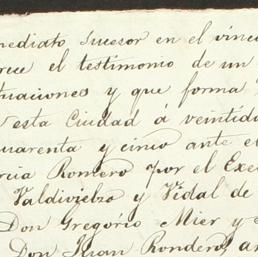 mediato, sucesor en el vinc
rece el testimonio de un
tuaciones y que forma
esta Ciudad á veintido
uarenta y cinco ante el
rcia Romero por el Exe
Valdivielso y Vidal de
Don Gregorio Mier y
Don Juan Rondero, an